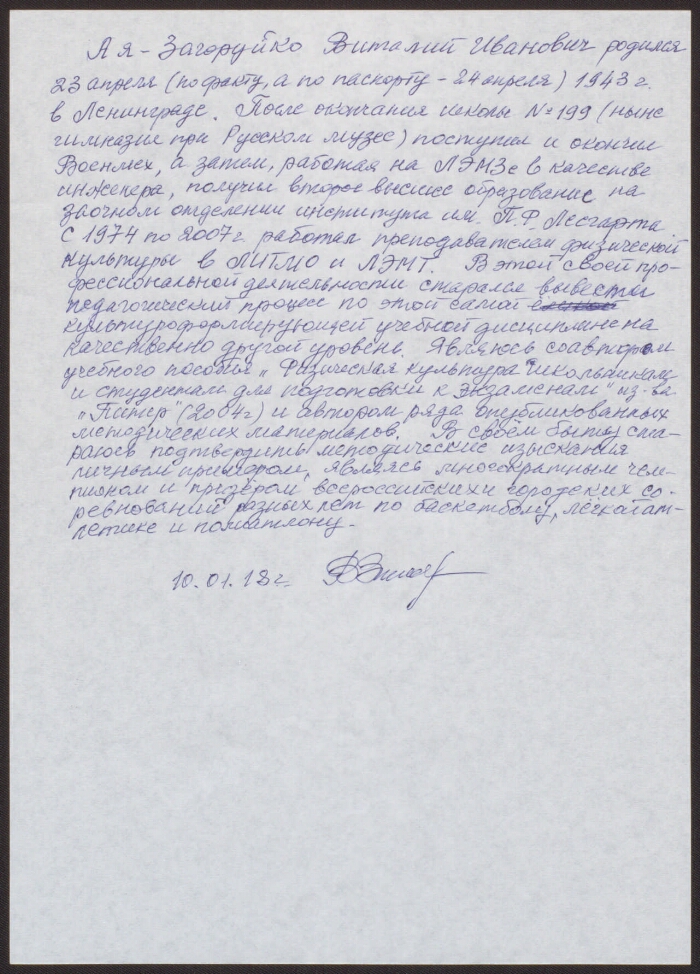 А я - Загоруйко Виталий Иванович родился
23 апреля (по факту, а по паспорту - 24 апреля) 1943 г.
в Ленинграде. После окончания школы № 199 (ныне
гимназия при Русском музее) поступил и окончил
Военмех, а затем, работая на ЛЭМЗе в качестве
инженера, получил второе высшее образование на
заочном отделении института им. П.Ф. Лесгафта
С 1974 по 2007 г. работал преподавателем физической
культуры в ЛИТМО и ЛЭМТ. В этой своей про-
фессиональной деятельности старался вывести
педагогический процесс по этой самой
культуроформирующей учебной дисциплине на
качественно другой уровень. Являюсь соавтором
учебного пособия „Физическая культура школьникам
и студентам для подготовки к экзаменам" из-ва
„Питер" (2004г) и автором ряда опубликованных
методических материалов. В своём бытu ста-
раюсь подтвердить методические изыскания
личным примером, являясь многократным чем-
пионом и призёром всероссийских и городских со-
ревнований разных лет по баскетболу, лёгкой ат-
летике и полиатлону.
10.01.18 г.